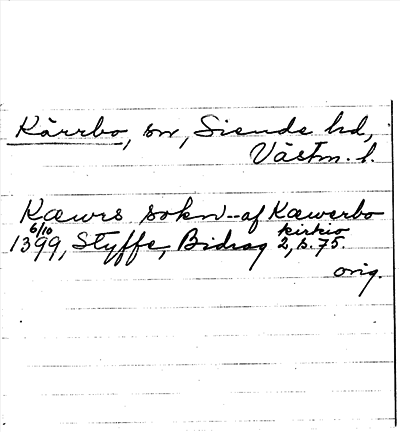 Kärrbo, sn, Siende hd,
Västm. l.
Kæwrs sokn -- af Kæwerbo
kirkio
6/10
1399, Styffe, Bidrag 2, s. 75.
orig.